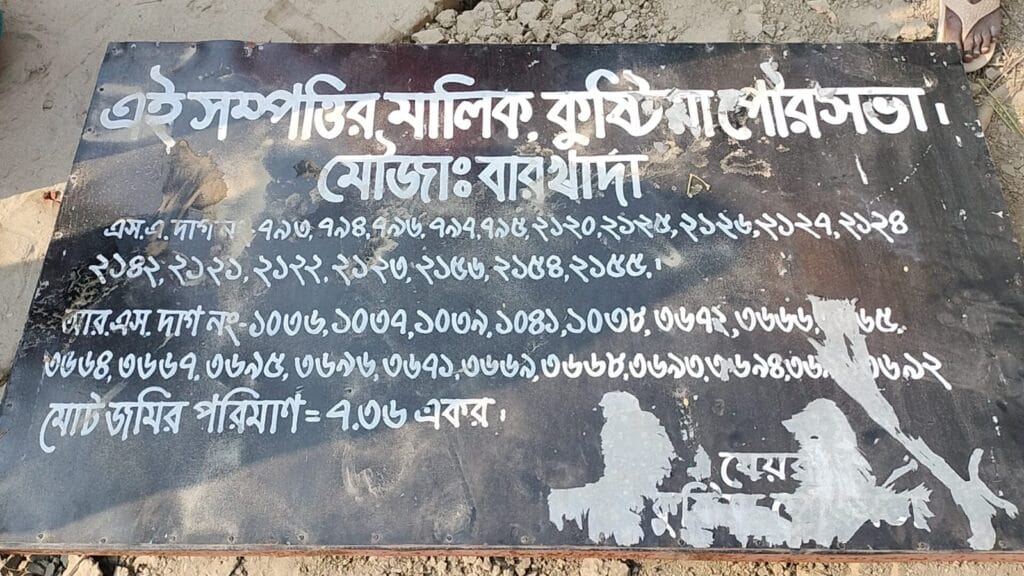 এই সম্পত্তির মালিক কুষ্টিয়া পৌরসভা।
মৌজাঃ বারখাদা
এস.এ. দাগ ন ৭৯৩, ৭৯৪, ৭৯৬, ৭৯৭, ৭৯৫, ২১২০, ২১২৫, ২১২৬, ২১২৭, ২১২৪
২১৪২, ২১২১, ২১২২, ২১২৩, ২১৫৩, ২১৫৪, ২১৫৫,।
আর.এস. দাগ নং-১০৩৬, ১০৩৭, ১০৩৯, ১০৪১, ১০৩৮, ৩৬৭২, ৩৬৬৬,
৩৬৬৪, ৩৬৬৭, ৩৬৯৫, ৩৬৯৬, ৩৬৭১, ৩৬৬৯, ৩৬৬৮, ৩৬৯৩, ৩৬৯৪, ৩৬৯২
মোট জমির পরিমাণ = ৭.৩৬ একর।
মেয়র